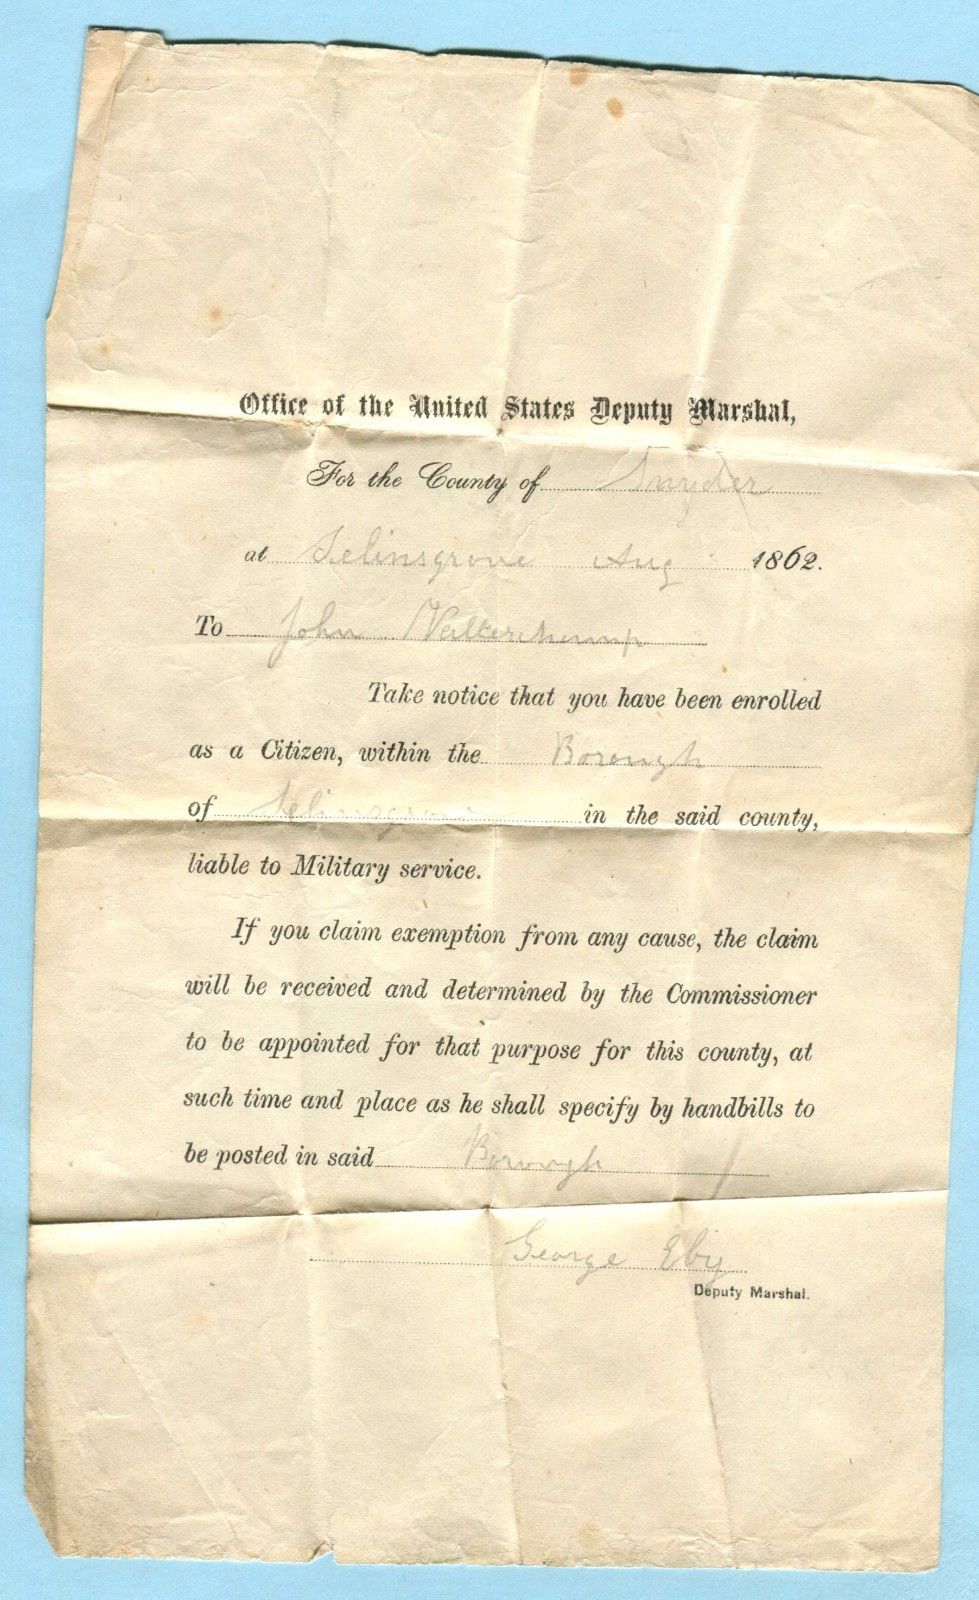 Office of the United States Deputy Marshal,
For the County of Snyder
at Selinsgrove Aug 1862.
To John
Take notice that you have been enrolled
as a Citizen, within the Borough
of Selinsgrove in the said county,
liable to Military service.
If you claim exemption from any cause, the claim
will be received and determined by the Commissioner
to be appointed for that purpose for this county, at
such time and place as he shall specify by handbills to
be posted in said Borough
George Eby
Deputy Marshal.